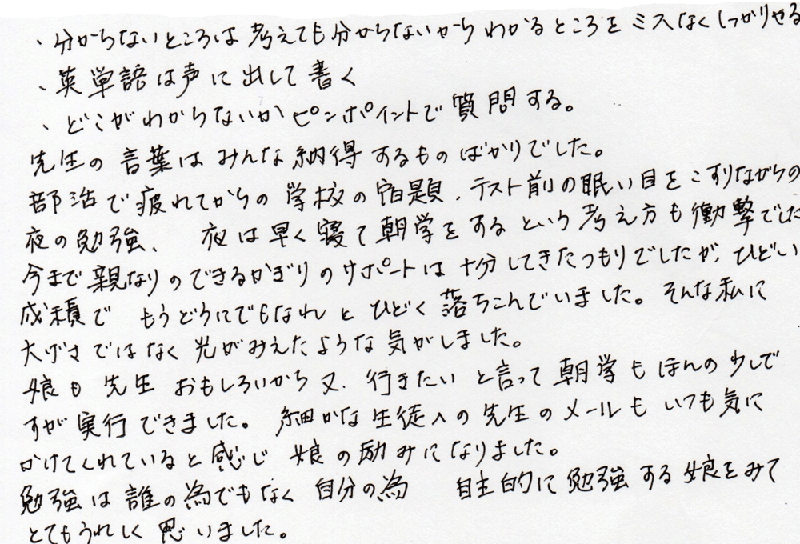 、分からないところは考えても分からないからわかるところをミスなくしっかりやる
、英単語は声に出して書く
、どこがわからないかピンポイントで質問する。
先生の言葉はみんな納得するものばかりでした。
部活で疲れてからの学校の宿題、テスト前の眠い目をこすりながらの
夜の勉強、夜は早く寝て朝学をするという考え方も衝撃でした
今まで親なりのできるかぎりのサポートは十分してきたつもりでしたが、ひどい
成積で もうどうにでもなれと ひどく落ちこんでいました。そんな私に
大げさではなく光がみえたような気がしました。
娘も先生おもしろいから又、行きたいと言って朝学もほんの少しで
すが実行できました。細かな生徒への先生のメールもいつも気に
かけてくれていると感じ 娘の励みになりました。
勉強は誰の為でもなく自分の為 自主的に勉強する娘をみて
とてもうれしく思いました。